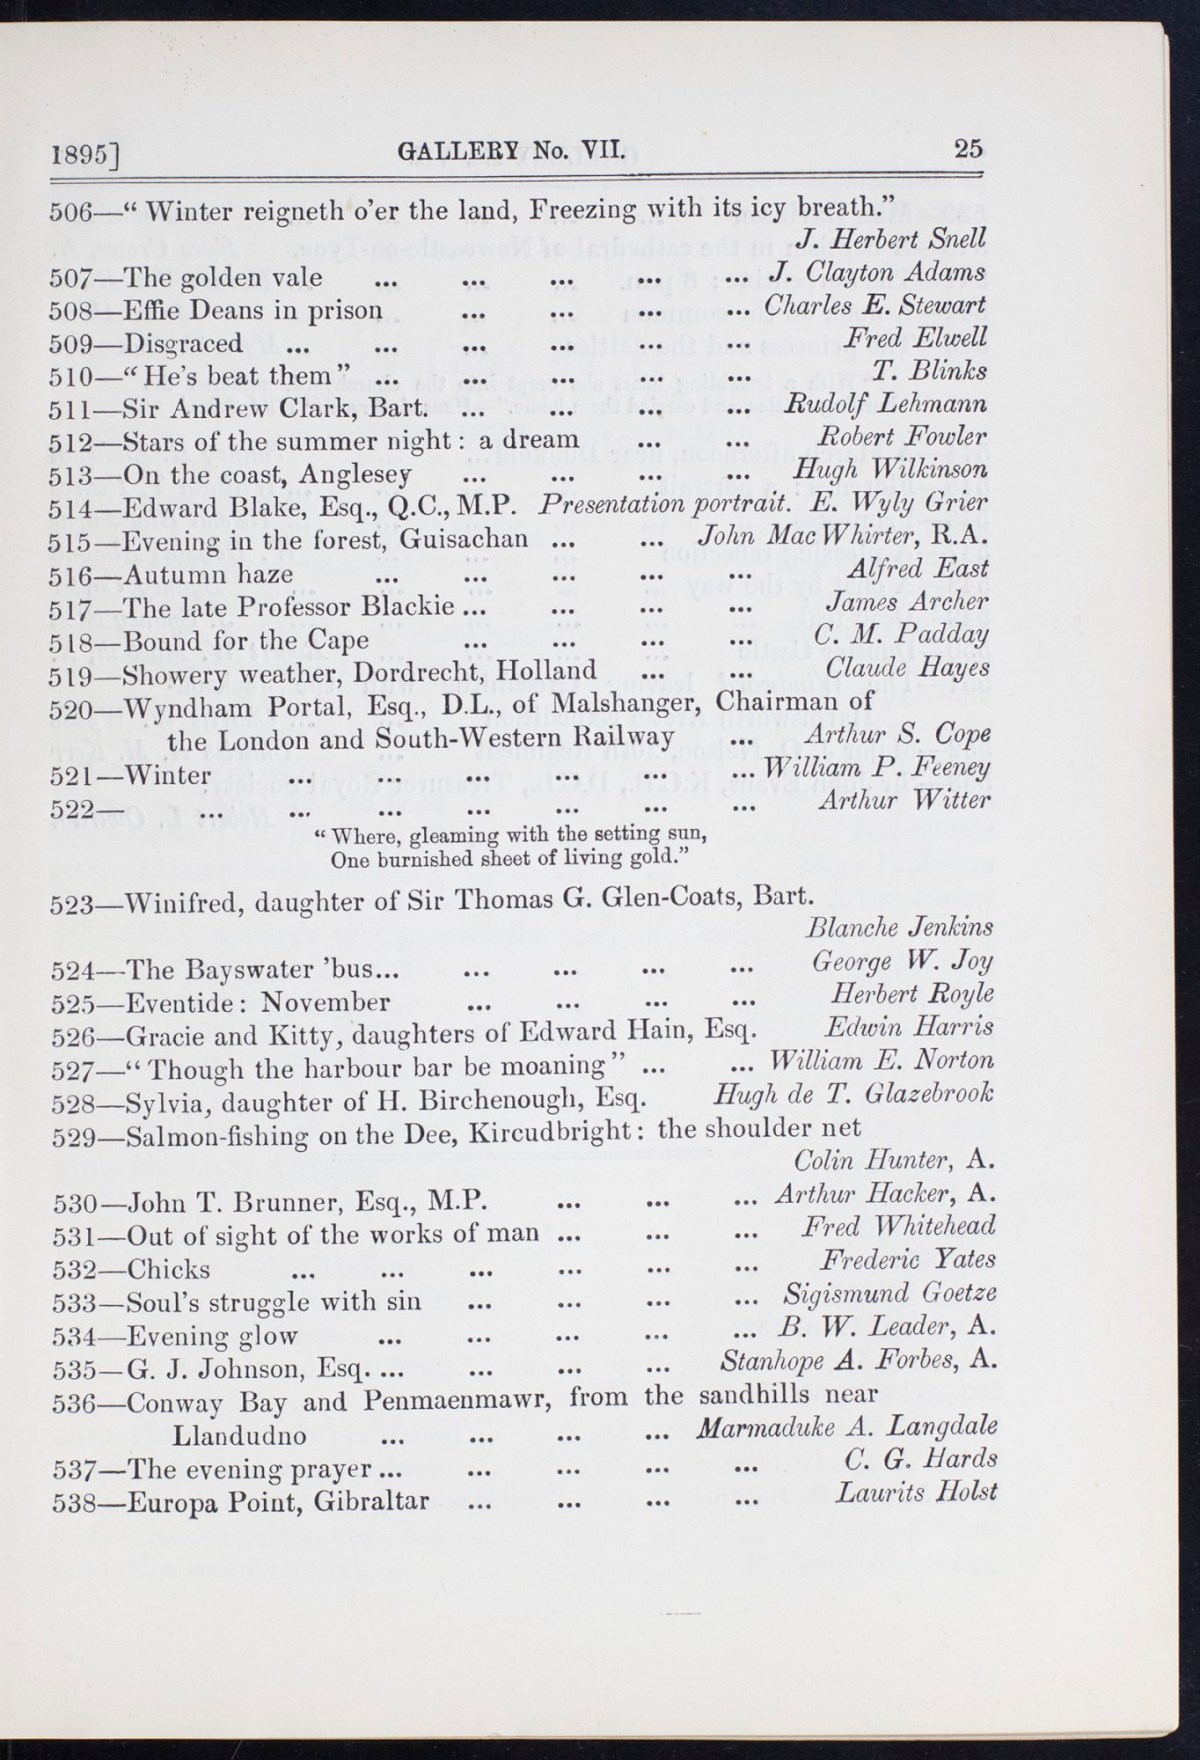 1895] GALLERY No. VII. 25
506—“ Winter reigneth o’er the land, Freezing with its icy breath.”
J. Herbert Snell
507—The golden vale ... ... ... ... ... J. Clayton Adams
508—Effie Deans in prison ... ... ... ... Charles E. Stewart
509—Disgraced ... ... ... ... ... ... Fred Elwell
510—“ He’s beat them ” ... ... ... ... ... T. Blinks
511—Sir Andrew Clark, Bart. ... ... ... ... Rudolf Lehmann
512—Stars of the summer night : a dream ... ... Robert Fowler
513—On the coast, Anglesey ... ... ... ... Hugh Wilkinson
514—Edward Blake, Esq., Q.C., M.P. Presentation portrait. E. Wyly Grier
515—Evening in the forest, Guisachan ... ... John MacWhirter, R.A.
516—Autumn haze ... ... ... ... ... Alfred East
517—The late Professor Blackie ... ... ... ... James Archer
518—Bound for the Cape ... ... ... ... C. M. Padday
519—Showery weather, Dordrecht, Holland ... ... Claude Hayes
520—Wyndham Portal, Esq., D.L., of Malshanger, Chairman of
the London and South-Western Railway ... Arthur S. Cope
521—Winter ... ... ... ... ... ... William P. Feeney
522— ... ... ... ... ... ... ... Arthur Witter
“ Where, gleaming with the setting sun,
One burnished sheet of living gold.”
523—Winifred, daughter of Sir Thomas G. Glen-Coats, Bart.
Blanche Jenkins
524—The Bayswater ’bus... ... ... ... ... George W. Joy
525—Eventide : November ... ... ... ... Herbert Royle
526—Gracie and Kitty, daughters of Edward Hain, Esq. Edwin Harris
527—“ Though the harbour bar be moaning ” ... ... William E. Norton
528—Sylvia, daughter of H. Birchenough, Esq. Hugh de T. Glazebrook
529—Salmon-fishing on the Dee, Kircudbright : the shoulder net
Colin Hunter, A.
530—John T. Brunner, Esq., M.P. ... ... ... Arthur Hacker, A.
531—Out of sight of the works of man ... ... ... Fred Whitehead
532—Chicks ... ... ... ... ... ... Frederic Yates
533—Soul’s struggle with sin ... ... ... ... Sigismund Goetze
534—Evening glow ... ... ... ... ... B. W. Leader, A.
535—G. J. Johnson, Esq. ... ... ... ... Stanhope A. Forbes, A.
536—Conway Bay and Penmaenmawr, from the sandhills near
Llandudno ... ... ... ... Marmaduke A. Langdale
537—The evening prayer ... ... ... ... ... C. G. Hards
538—Europa Point, Gibraltar ... ... ... ... Laurits Holst